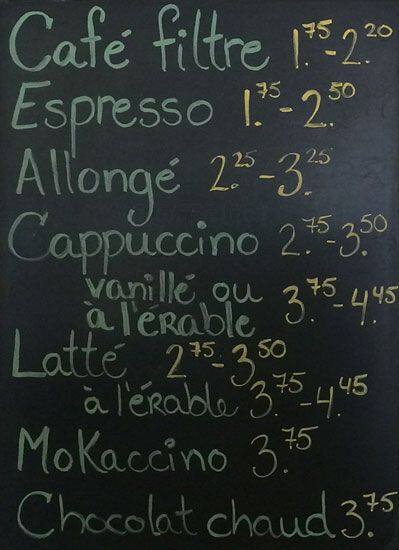 Café filtre 1.75-2.20
Espresso 1.75-2.50
Allongé 2.25-3.25
Cappuccino 2.75-3.50
vanillé ou
à l'érable 3.75-4.45
Latté 2.75-3.50
à l'érable 3.75-4.45
Mokaccino 3.75
Chocolat chaud 3.75